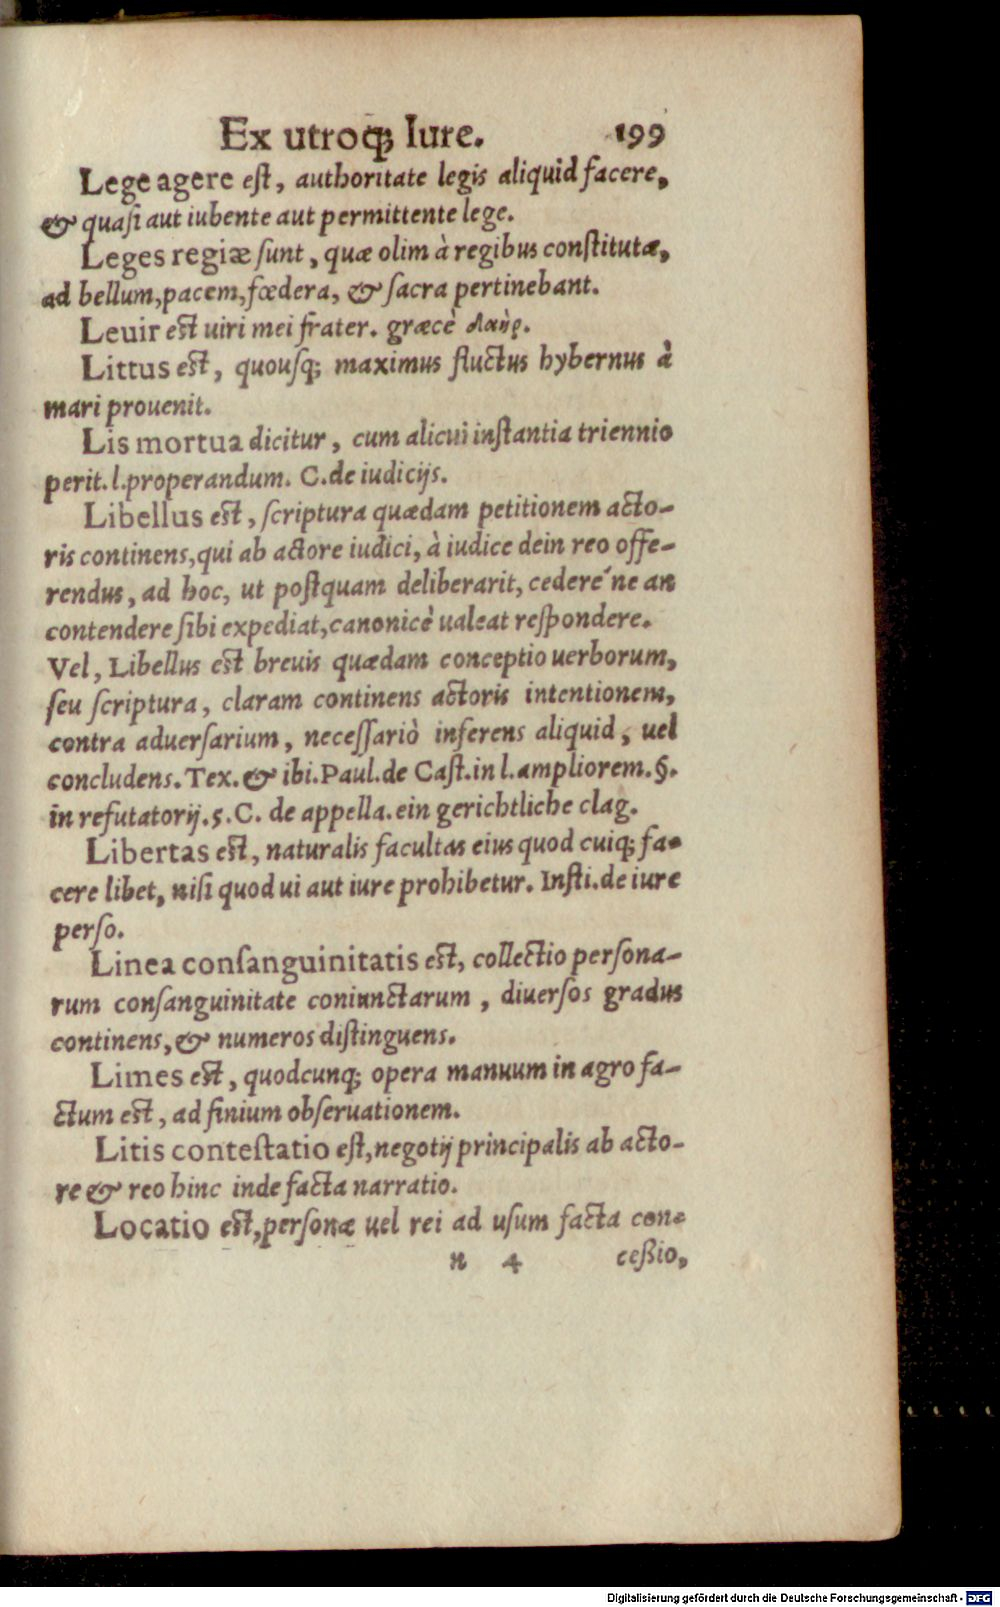 Ex utroq; Iure. 199
Lege agere eſt, authoritate legis aliquid facere,
& quaſi aut iubente aut permittente lege.
Leges regiæ ſunt, quæ olim à regibus conſtitutæ,
ad bellum, pacem, fœdera, & ſacra pertinebant.
Leuir eſt uiri mei frater. græcè δαὴρ.
Littus eſt, quouſq; maximus fluctus hybernus à
mari prouenit.
Lis mortua dicitur, cum alicui inſtantia triennio
perit. l. properandum. C. de iudicijs.
Libellus eſt, ſcriptura quædam petitionem acto-
ris continens, qui ab actore iudici, à iudice dein reo offe-
rendus, ad hoc, ut poſtquam deliberarit, cedere´ne an
contendere ſibi expediat, canonicè ualeat reſpondere.
Vel, Libellus eſt breuis quædam conceptio uerborum,
ſeu ſcriptura, claram continens actoris intentionem,
contra aduerſarium, neceſſariò inferens aliquid, uel
concludens. Tex. & ibi. Paul. de Caſt. in l. ampliorem. §.
in refutatorij. 5. C. de appella. ein gerichtliche clag.
Libertas eſt, naturalis facultas eius quod cuiq; fa-
cere libet, niſi quod ui aut iure prohibetur. Inſti. de iure
perſo.
Linea conſanguinitatis eſt, collectio perſona-
rum conſanguinitate coniunctarum, diuerſos gradus
continens, & numeros diſtinguens.
Limes eſt, quodcunq; opera manuum in agro fa-
ctum eſt, ad finium obſeruationem.
Litis conteſtatio eſt, negotij principalis ab acto-
re & reo hinc inde facta narratio.
Locatio eſt, perſonæ uel rei ad uſum facta con-
n 4 ceßio,
Digitalisierung gefördert durch die Deutsche Forschungsgemeinschaft - DFG